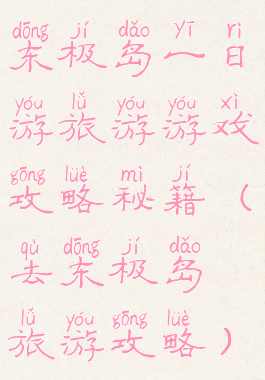 dōng jí dǎo yī rì
东极岛一日
yóu lǚ yóu yóu xì
游旅游游戏
gōng lüè mì jí
攻略秘籍（
qù dōng jí dǎo
去东极岛
lǚ yóu gōng lüè
旅游攻略）